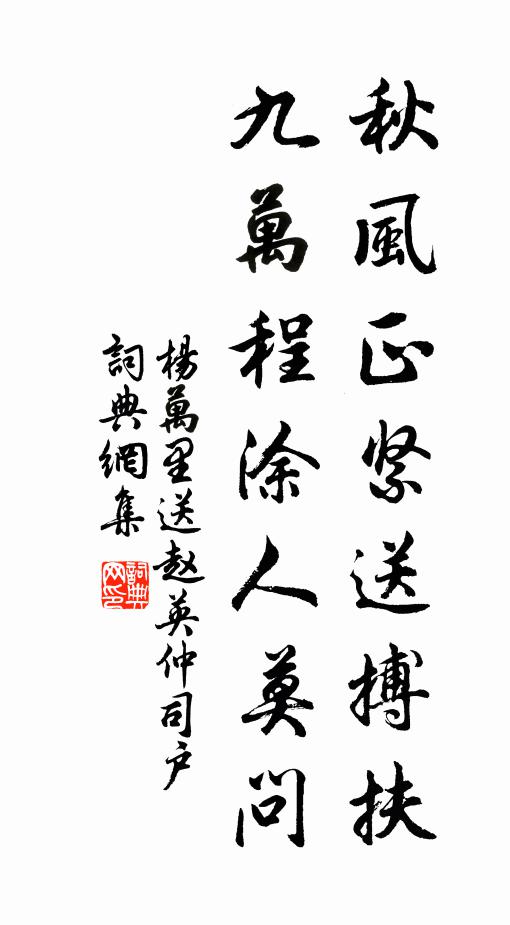 秋風正紧送搏扶
九萬程涂人莫问
楊萬里送赵英仲司户
詞典網集
詞典网印